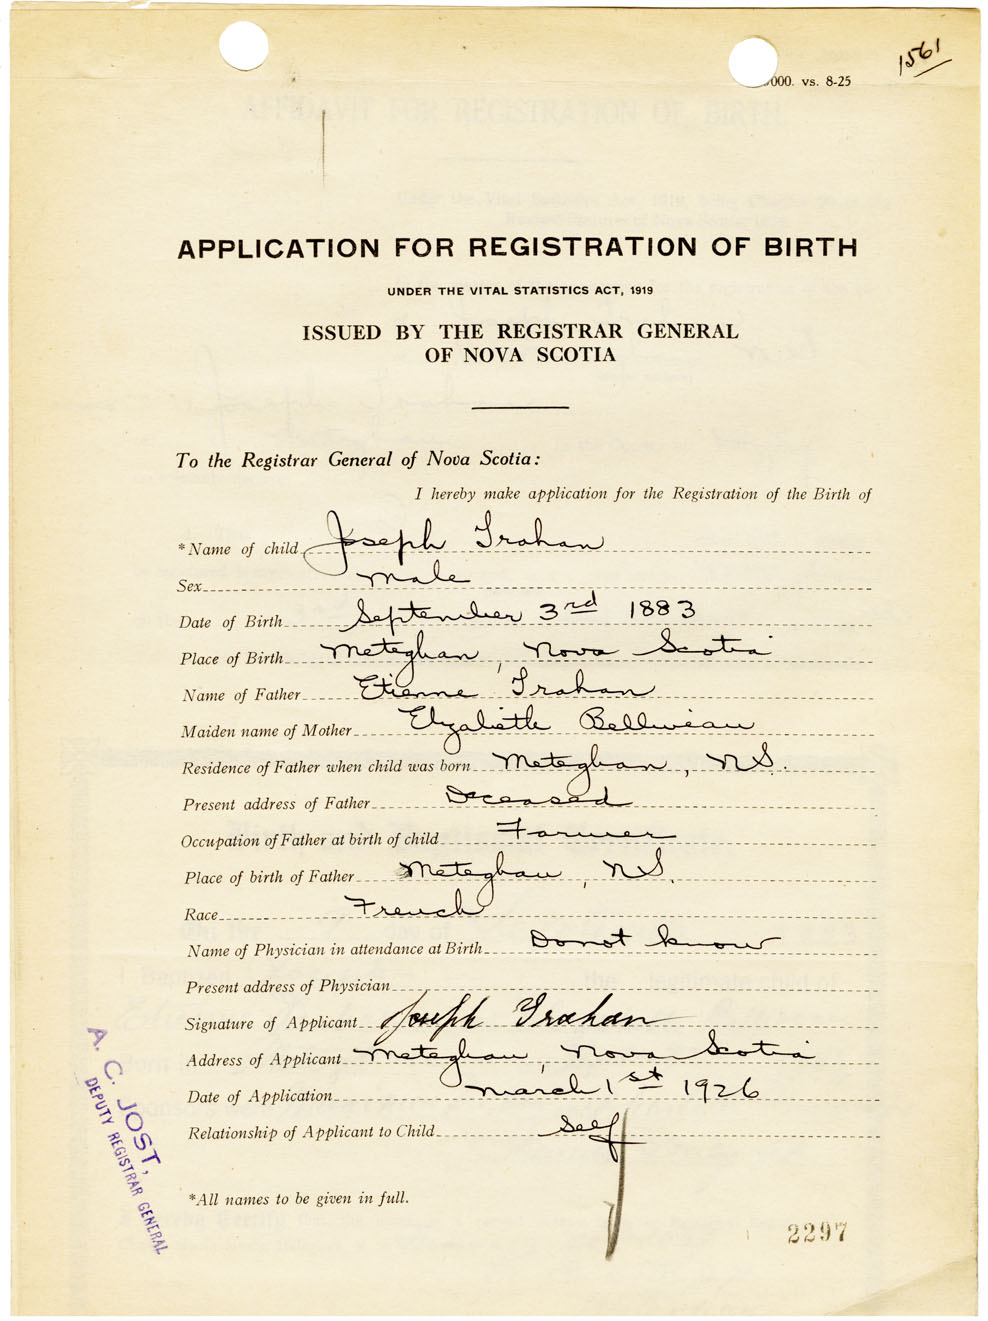 1561
000. vs. 8-25
APPLICATION FOR REGISTRATION OF BIRTH
UNDER THE VITAL STATISTICS ACT, 1919
ISSUED BY THE REGISTRAR GENERAL
OF NOVA SCOTIA
To the Registrar General of Nova Scotia:
I hereby make application for the Registration of the Birth of
*Name of child Joseph Trahan
Sex Male
Date of Birth September 3rd 1883
Place of Birth Meteghan, Nova Scotia
Name of Father Etienne Trahan
Maiden name of Mother Elizabeth Belliveau
Residence of Father when child was born Meteghan, N.S.
Present address of Father Deceased
Occupation of Father at birth of child Farmer
Place of birth of Father Meteghan, N.S.
Race French
Name of Physician in attendance at Birth Do not know
Present address of Physician
Signature of Applicant Joseph Trahan
Address of Applicant Meteghan, Nova Scotia
Date of Application March 1st 1926
Relationship of Applicant to Child Self
*All names to be given in full.
A. C. JOST,
DEPUTY REGISTRAR GENERAL
2297